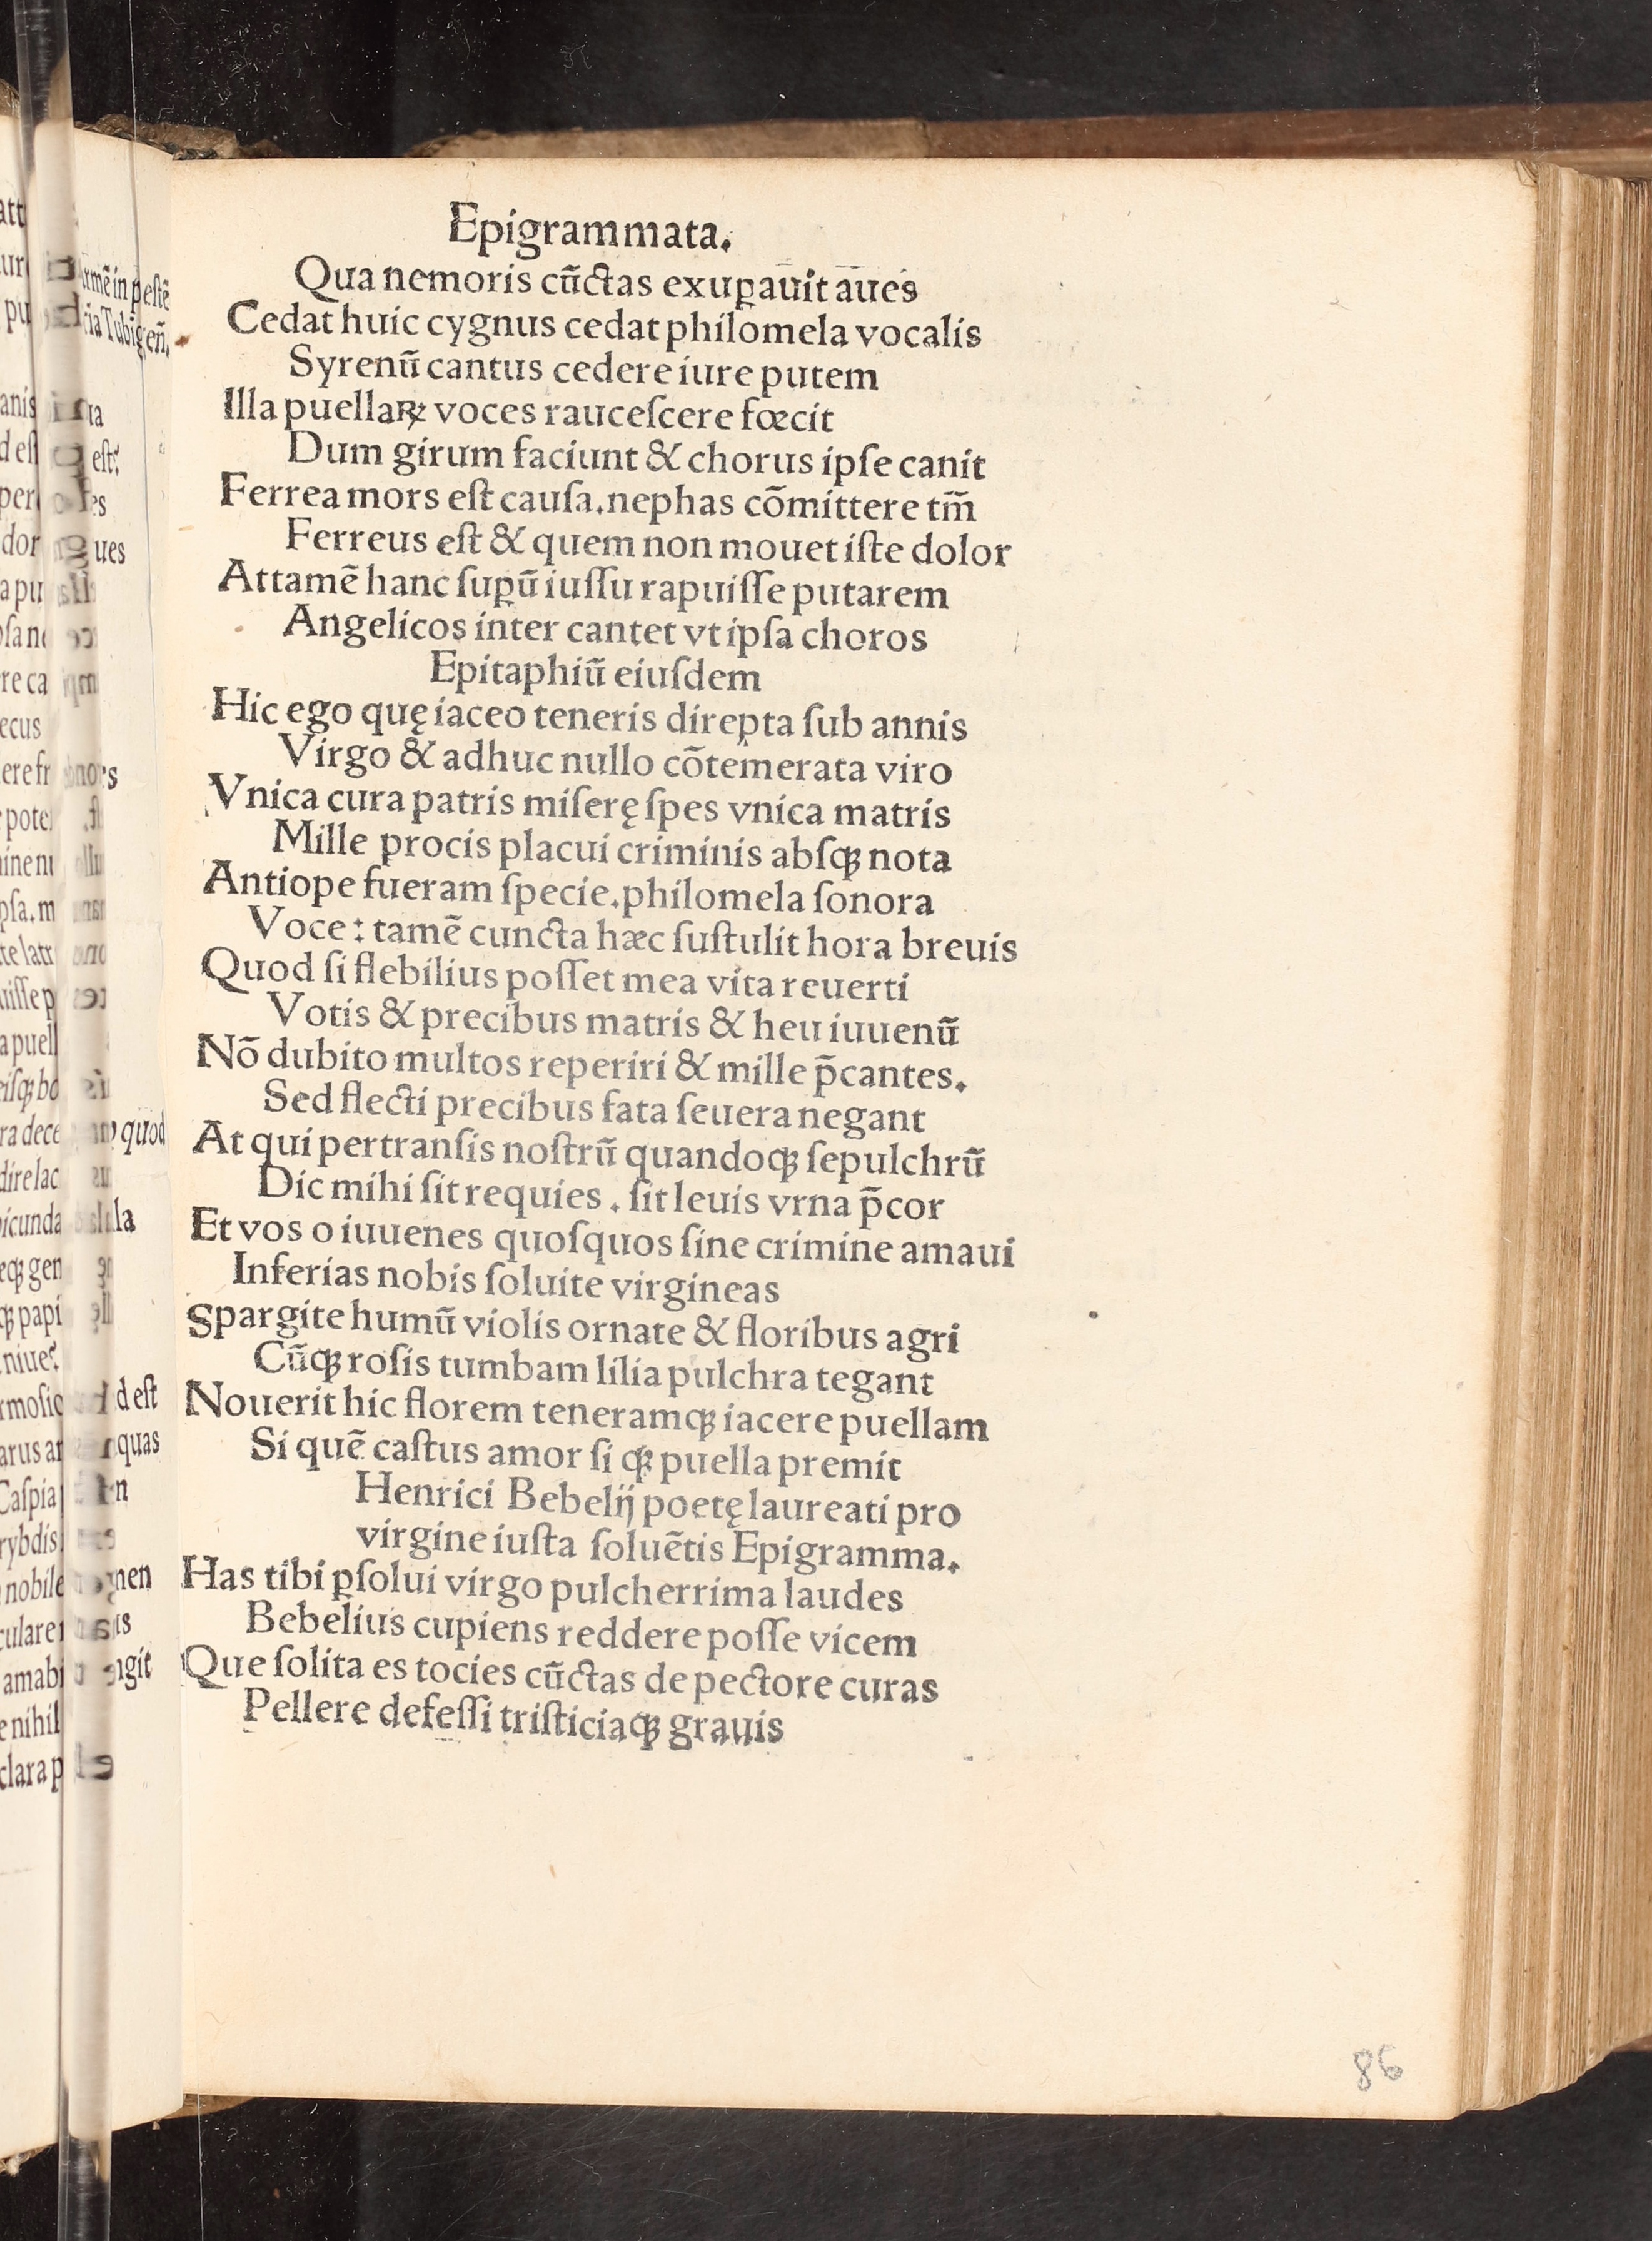 Epigrammata.
Qua nemoris cūctas exuꝑauit aues
Cedat huic cygnus cedat philomela vocalis
Syrenū cantus cedere iure putem
Illa puellaꝝ voces rauceſcere fœcit
Dum girum faciunt & chorus ipſe canit
Ferrea mors eſt cauſa.nephas cōmittere tm̄
Ferreus eſt & quem non mouet iſte dolor
Attamē hanc ſuꝑū iuſſu rapuiſſe putarem
Angelicos inter cantet vt ipſa choros
Epitaphiū eiuſdem
Hic ego quę iaceo teneris direpta ſub annis
Virgo & adhuc nullo cōtemerata viro
Vnica cura patris miſerę ſpes vnica matris
Mille procis placui criminis abſqꝫ nota
Antiope fueram ſpecie.philomela ſonora
Voce: tamē cuncta hæc ſuſtulit hora breuis
Quod ſi flebilius poſſet mea vita reuerti
Votis & precibus matris & heu iuuenū
Nō dubito multos reperiri & mille p̄cantes.
Sed flecti precibus fata ſeuera negant
At qui pertranſis noſtrū quandoqꝫ ſepulchrū
Dic mihi ſit requies . ſit leuis vrna p̄cor
Et vos o iuuenes quoſquos ſine crimine amaui
Inferias nobis ſoluite virgineas
Spargite humū violis ornate & floribus agri
Cūqꝫ roſis tumbam lilia pulchra tegant
Nouerit hic florem teneramqꝫ iacere puellam
Si quē caſtus amor ſi qꝫ puella premit
Henrici Bebelij poetę laureati pro
virgine iuſta ſoluētis Epigramma.
Has tibi ꝑſolui virgo pulcherrima laudes
Bebelius cupiens reddere poſſe vicem
Que ſolita es tocies cūctas de pectore curas
Pellere defeſſi triſticiaqꝫ grauis
86